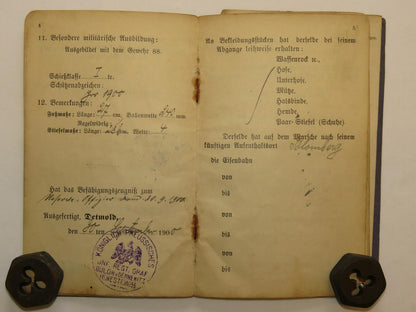 11. Besondere militärische Ausbildung:
Ausgebildet mit dem Gewehr 88.
Schießklasse I te.
Schützenabzeichen:
1900
12. Bemerkungen:
Fußmaß: Länge: 27 cm, Ballenweite mm
Stiefelmaß: Länge: Weite: 4
Hat das Befähigungszeugniß zum
Ausgefertigt, Detmold,
den 30 ten September 1900
KÖNIGLICH PREUSSISCHES
INF. REGT. GRAF
BÜLOW v. DENNEWITZ
(6. WESTF.) No 55
An Bekleidungsstücken hat derselbe bei seinem
Abgange leihweise erhalten:
Waffenrock rc.,
Hose,
Unterhose,
Mütze,
Halsbinde,
Hemde,
Paar Stiefel (Schuhe).
Derselbe hat auf dem Marsche nach seinem
künftigen Aufenthaltsort Blomberg
die Eisenbahn
von
bis
von
bis
von
bis